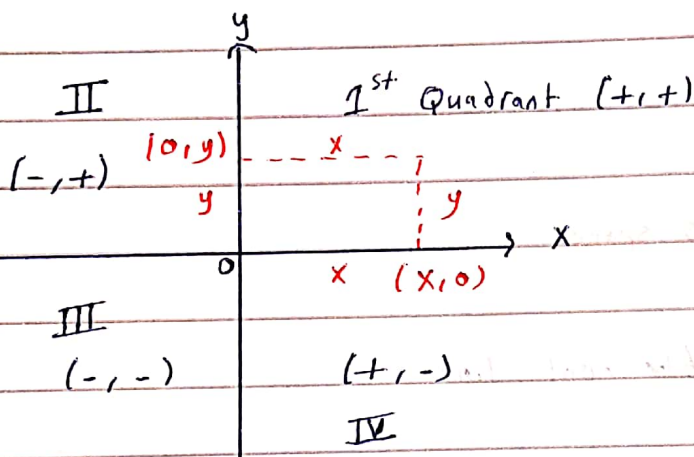 y
II 1st Quadrant (+,+)
(0,y) x
(-,+)
y y
x
0 x (x,0)
III
(-,-) (+,-)
IV